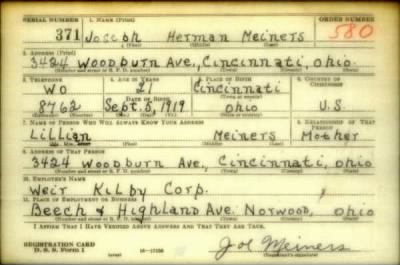 SERIAL NUMBER 1. NAME (Print) ORDER NUMBER
371 Joseph Herman Meiners 580
(First) (Middle) (Last)
2. ADDRESS (Print)
3424 Woodburn Ave., Cincinnati, ohio.
(Number and street or R. F. D. number) (Town) (County) (State)
3. TELEPHONE 4. AGE IN YEARS 5. PLACE OF BIRTH 6. COUNTRY OF CITIZENSHIP
WO 21 Cincinnati
DATE OF BIRTH (Town or county)
8762 Sept. 5, 1919 ohio U.S.
7. NAME OF PERSON WHO WILL ALWAYS KNOW YOUR ADDRESS 8. RELATIONSHIP OF THAT PERSON
Lillian Meiners Mother
(First) (Middle) (Last)
9. ADDRESS OF THAT PERSON
3424 Woodburn Ave., Cincinnati, ohio
(Number and street or R. F. D. number) (Town) (County) (State)
10. EMPLOYER'S NAME
Weir Kilby Corp.
11. PLACE OF EMPLOYMENT OR BUSINESS
Beech & Highland Ave. Norwood, ohio
(Number and street or R. F. D. number) (Town) (County) (State)
I AFFIRM THAT I HAVE VERIFIED ABOVE ANSWERS AND THAT THEY ARE TRUE.
REGISTRATION CARD
D. S. S. Form 1 Joe Meiners